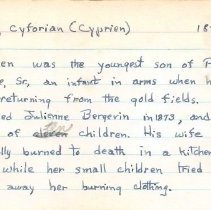 , Cyforian (Cyprien) 18
en was the youngest son of F
e, Sr, an infant in arms when h
returning from the gold fields.
ed Julienne Bergevin in 1873, and
of eleven children. His wife
lly burned to death in a kitchen
while her small children tried
away her burning clothing.